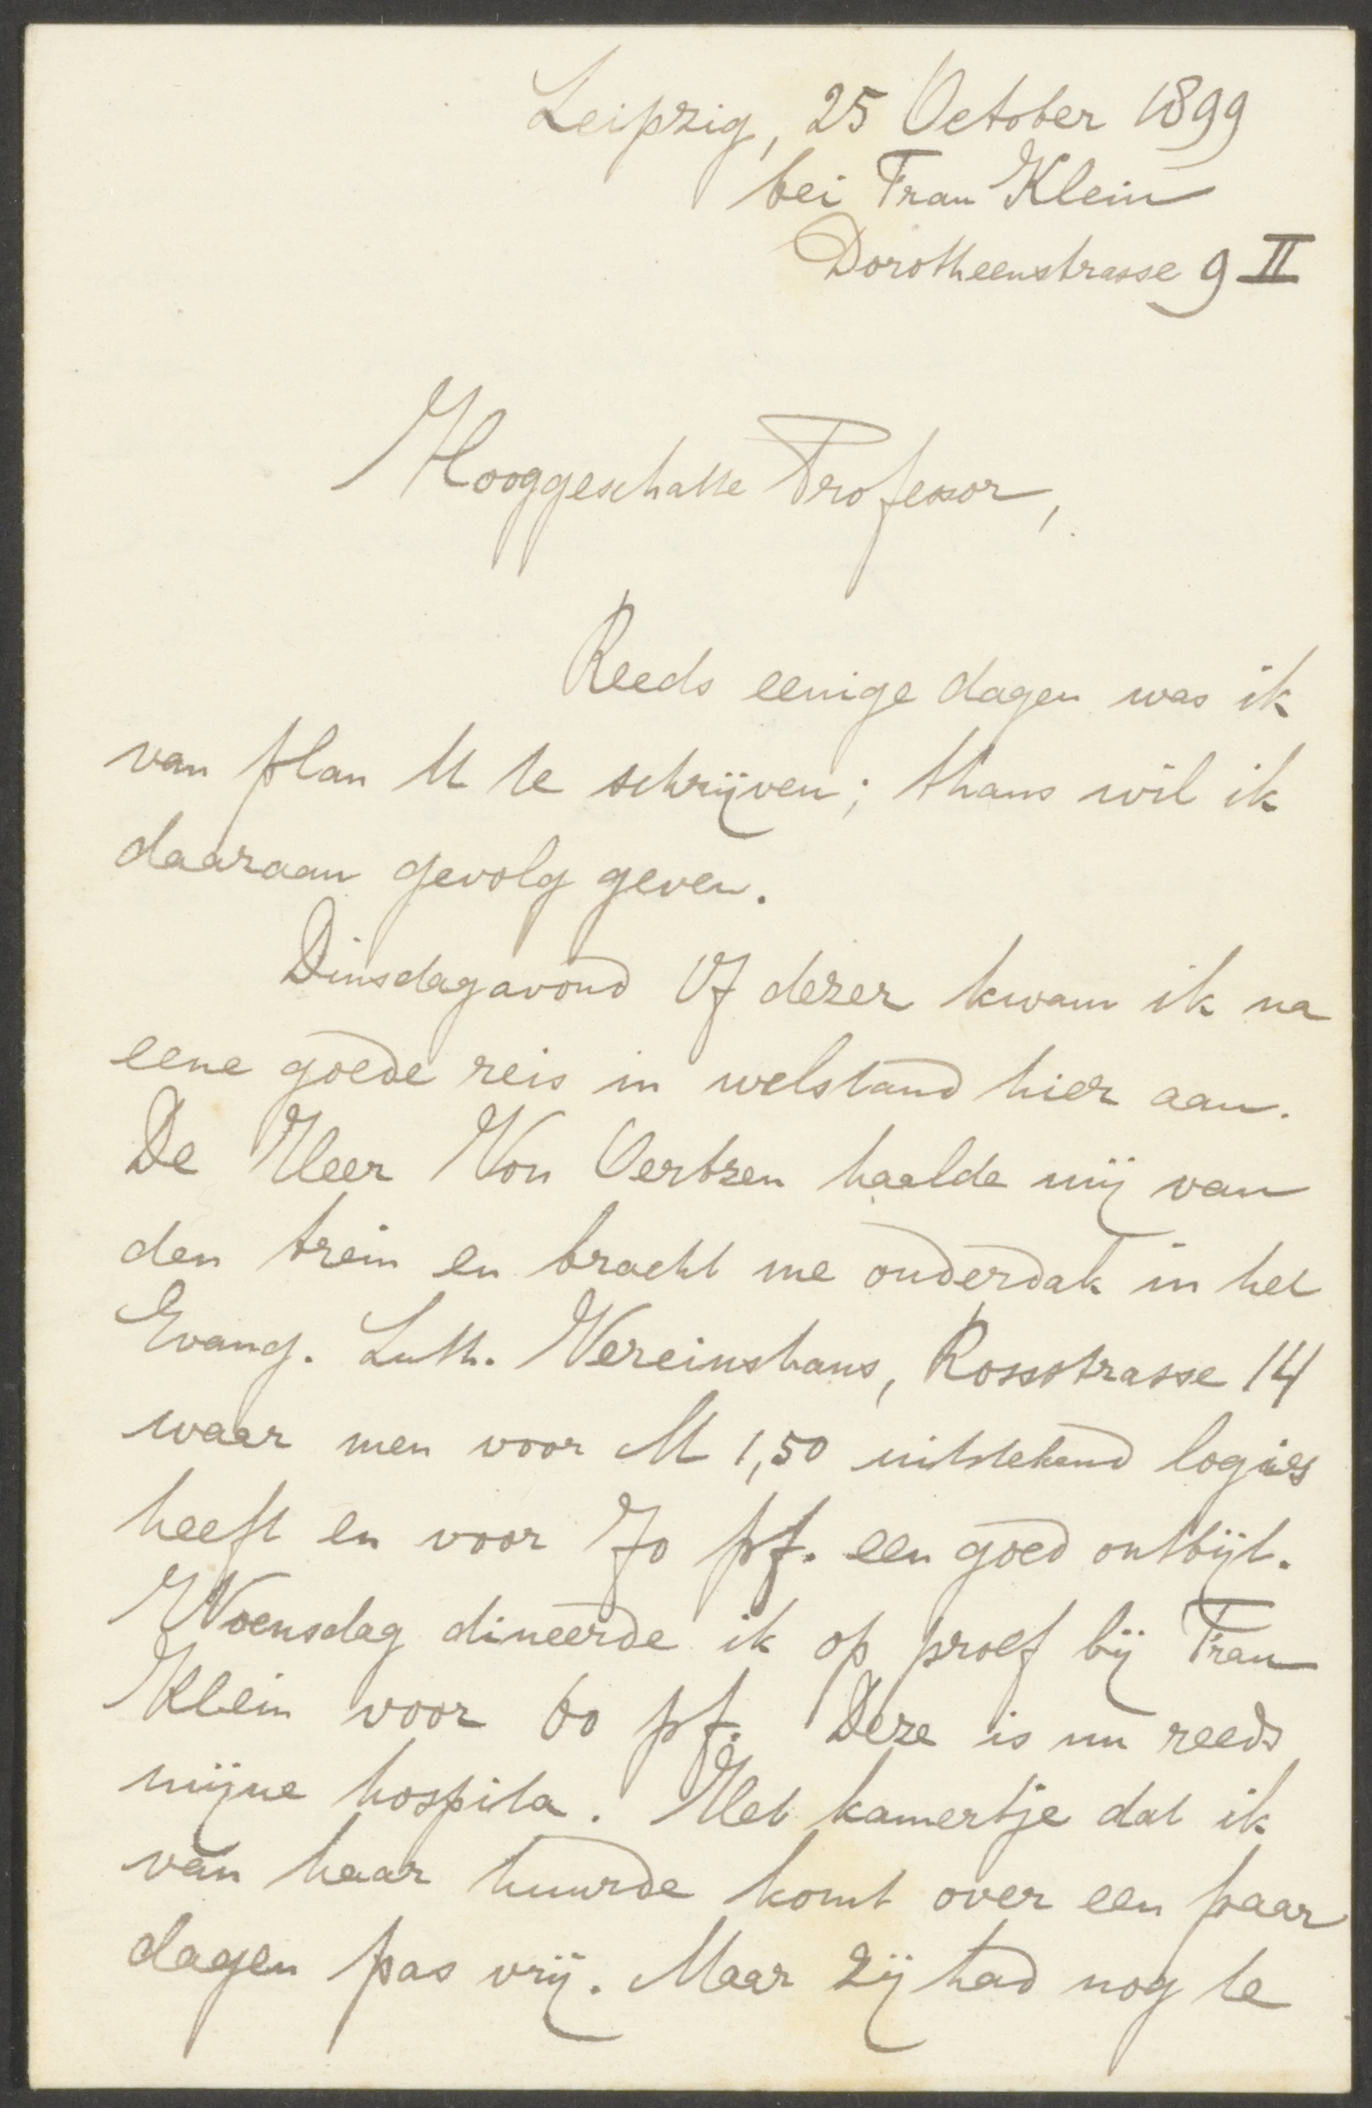 Leipzig, 25 October 1899
bei Frau Klein
Dorotheenstrasse 9 II
Hooggeschatte Professor,
Reeds eenige dagen was ik
van plan U te schrijven; thans wil ik
daaraan gevolg geven.
Dinsdagavond 17 dezer kwam ik na
eene goede reis in welstand hier aan.
De Heer Von Oertzen haalde mij van
den trein en bracht me onderdak in het
Evang. Luth. Vereinshaus, Rossstrasse 14
waar men voor M 1,50 uitstekend logies
heeft en voor 70 pf. een goed ontbijt.
Woensdag dineerde ik op proef bij Frau
Klein voor 60 pf. Deze is nu reeds
mijne hospita. Het kamertje dat ik
van haar huurde komt over een paar
dagen pas vrij. Maar zij had nog te